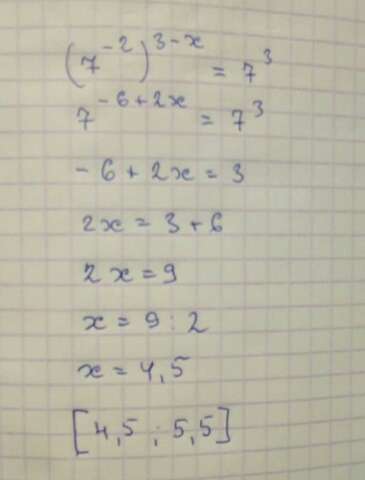 (7^-2)^3-x = 7^3
7^-6+2x = 7^3
-6+2x=3
2x=3+6
2x=9
x=9:2
x=4,5
[4,5 ; 5,5]